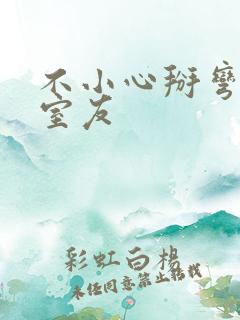 不小心掰弯
室友
彩虹白杨
未经同意禁止转载